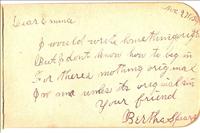 Dear Emma
I would write something original
But I don't know how to begin
For there's nothing original
In me unless its original sin
Your friend
Bertha